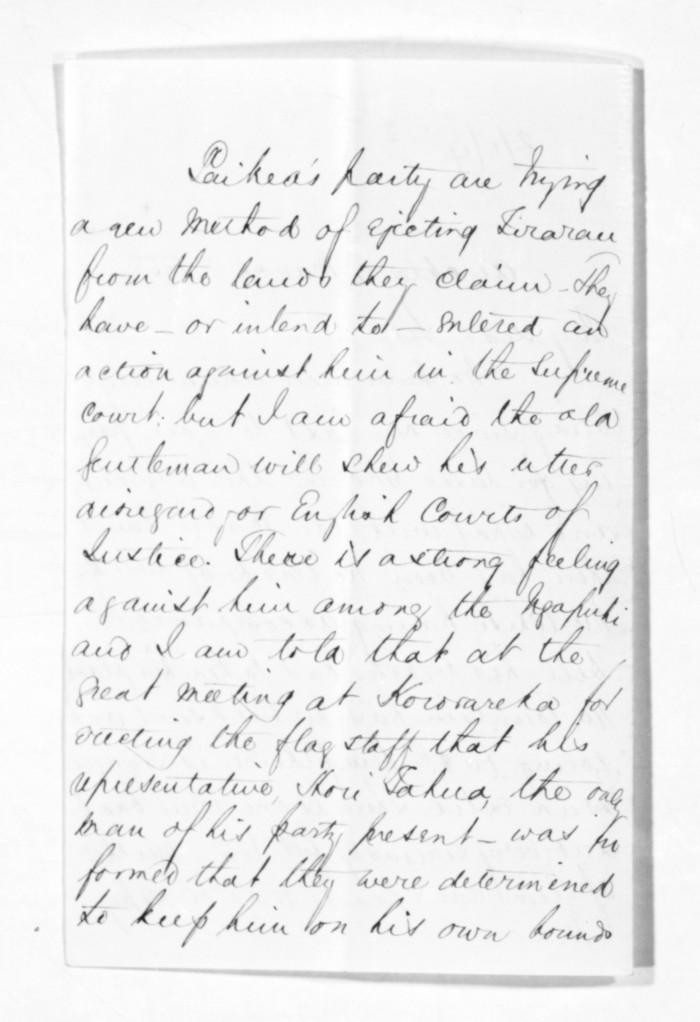 Paikea's party are trying
a new method of ejecting Tirarau
from the lands they claim - They
have - or intend to - entered an
action against him in the Supreme
Court: but I am afraid the old
gentleman will shew his utter
disregard for English Courts of
Justice. There is a strong feeling
against him among the Ngapuhi
and I am told that at the
great meeting at Kororareka for
erecting the flag staff that his
representative, Hori Tahua, the only
man of his party present - was in
formed that they were determined
to keep him on his own bounds